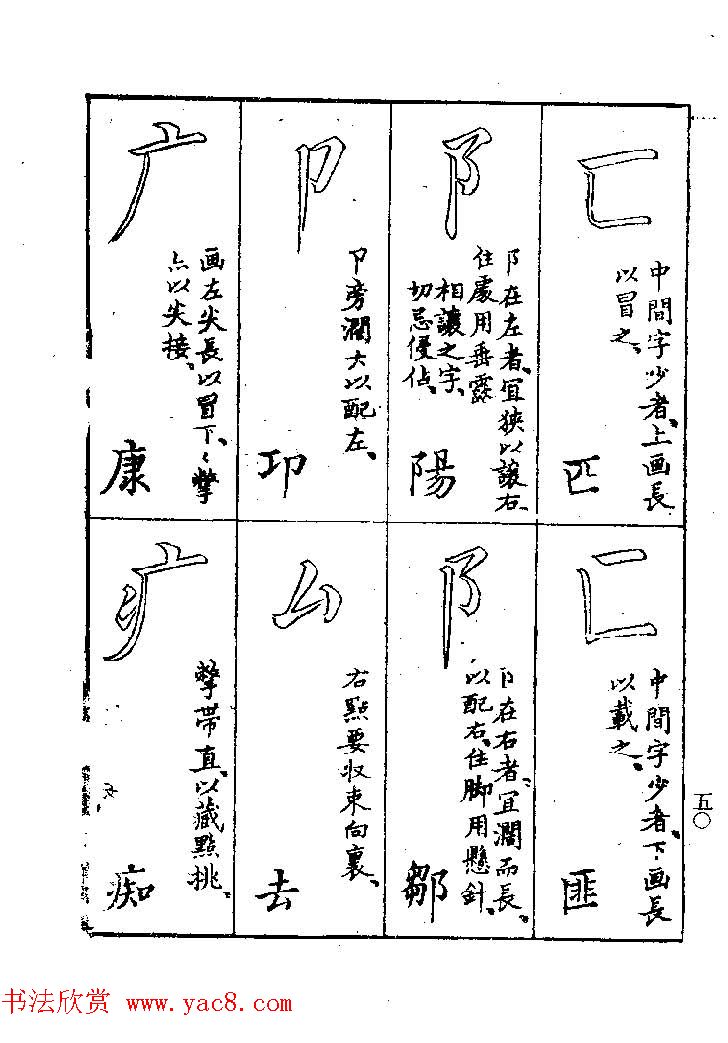 匚
中間字少者、上画長
以冒之、
匹
阝
阝在左者、宜狭以讓右、
住處用垂露
相讓之字、
切忌侵佔、
陽
卩
卩旁濶大以配左、
卬
广
画左尖長以冒下、く撆
点以尖接、
康
匚
中間字少者、下画長
以載之、
匪
阝
阝在右者、宜濶而長、
以配右、住脚用懸針、
鄒
厶
右點要収束向裏、
去
疒
撆帶直、以藏點挑、
痴
五〇
书法欣赏 www.yac8.com